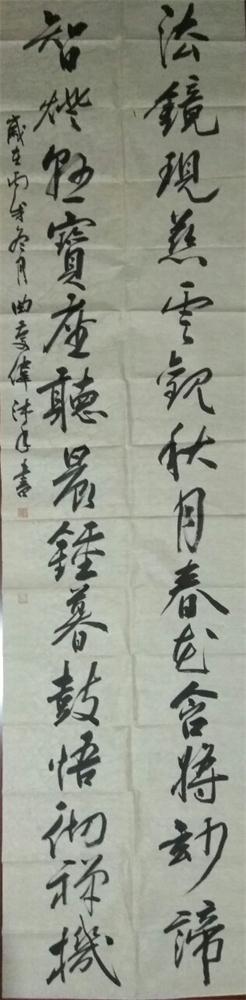 法鏡現慈雲觀秋月春花含將妙諦
智燈懸寶座聽晨鍾暮鼓悟彻禪機
歲在丙戌冬月曲慶偉沐手書